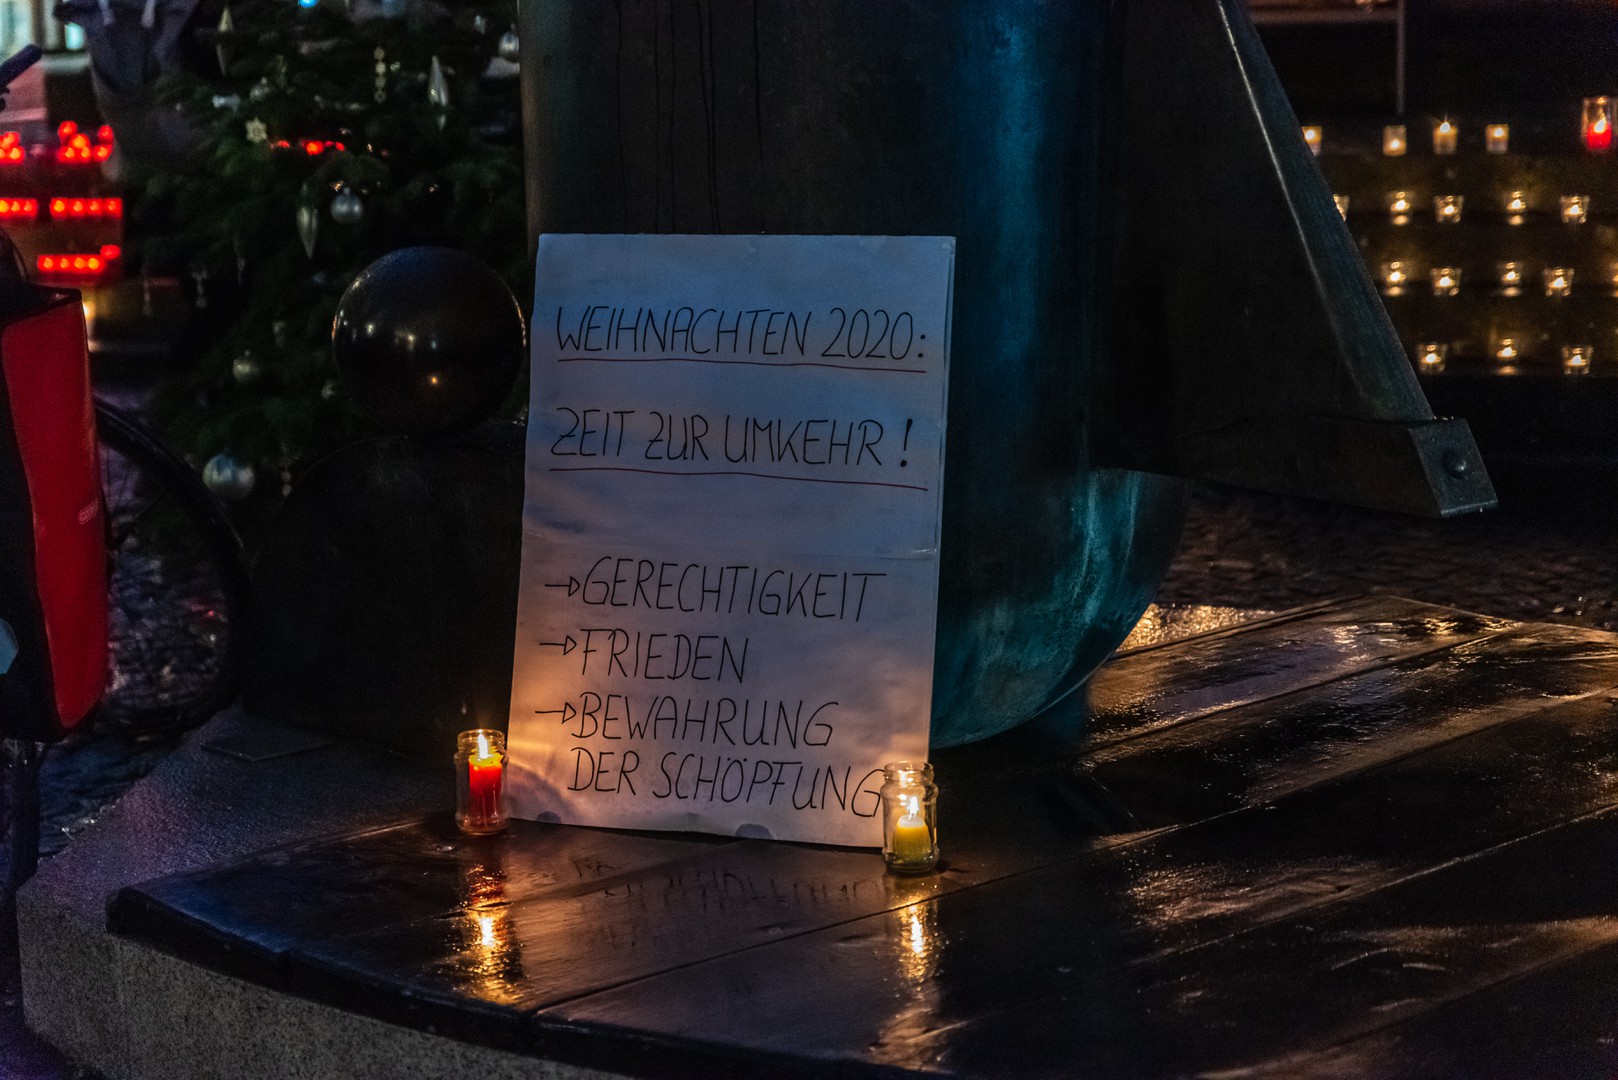 WEIHNACHTEN 2020:
ZEIT ZUR UMKEHR!
→GERECHTIGKEIT
→FRIEDEN
→BEWAHRUNG
DER SCHÖPFUNG